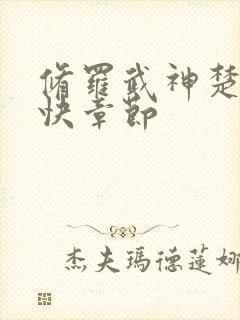 脩羅武神楚
快章節
杰夫瑪德蓮娜